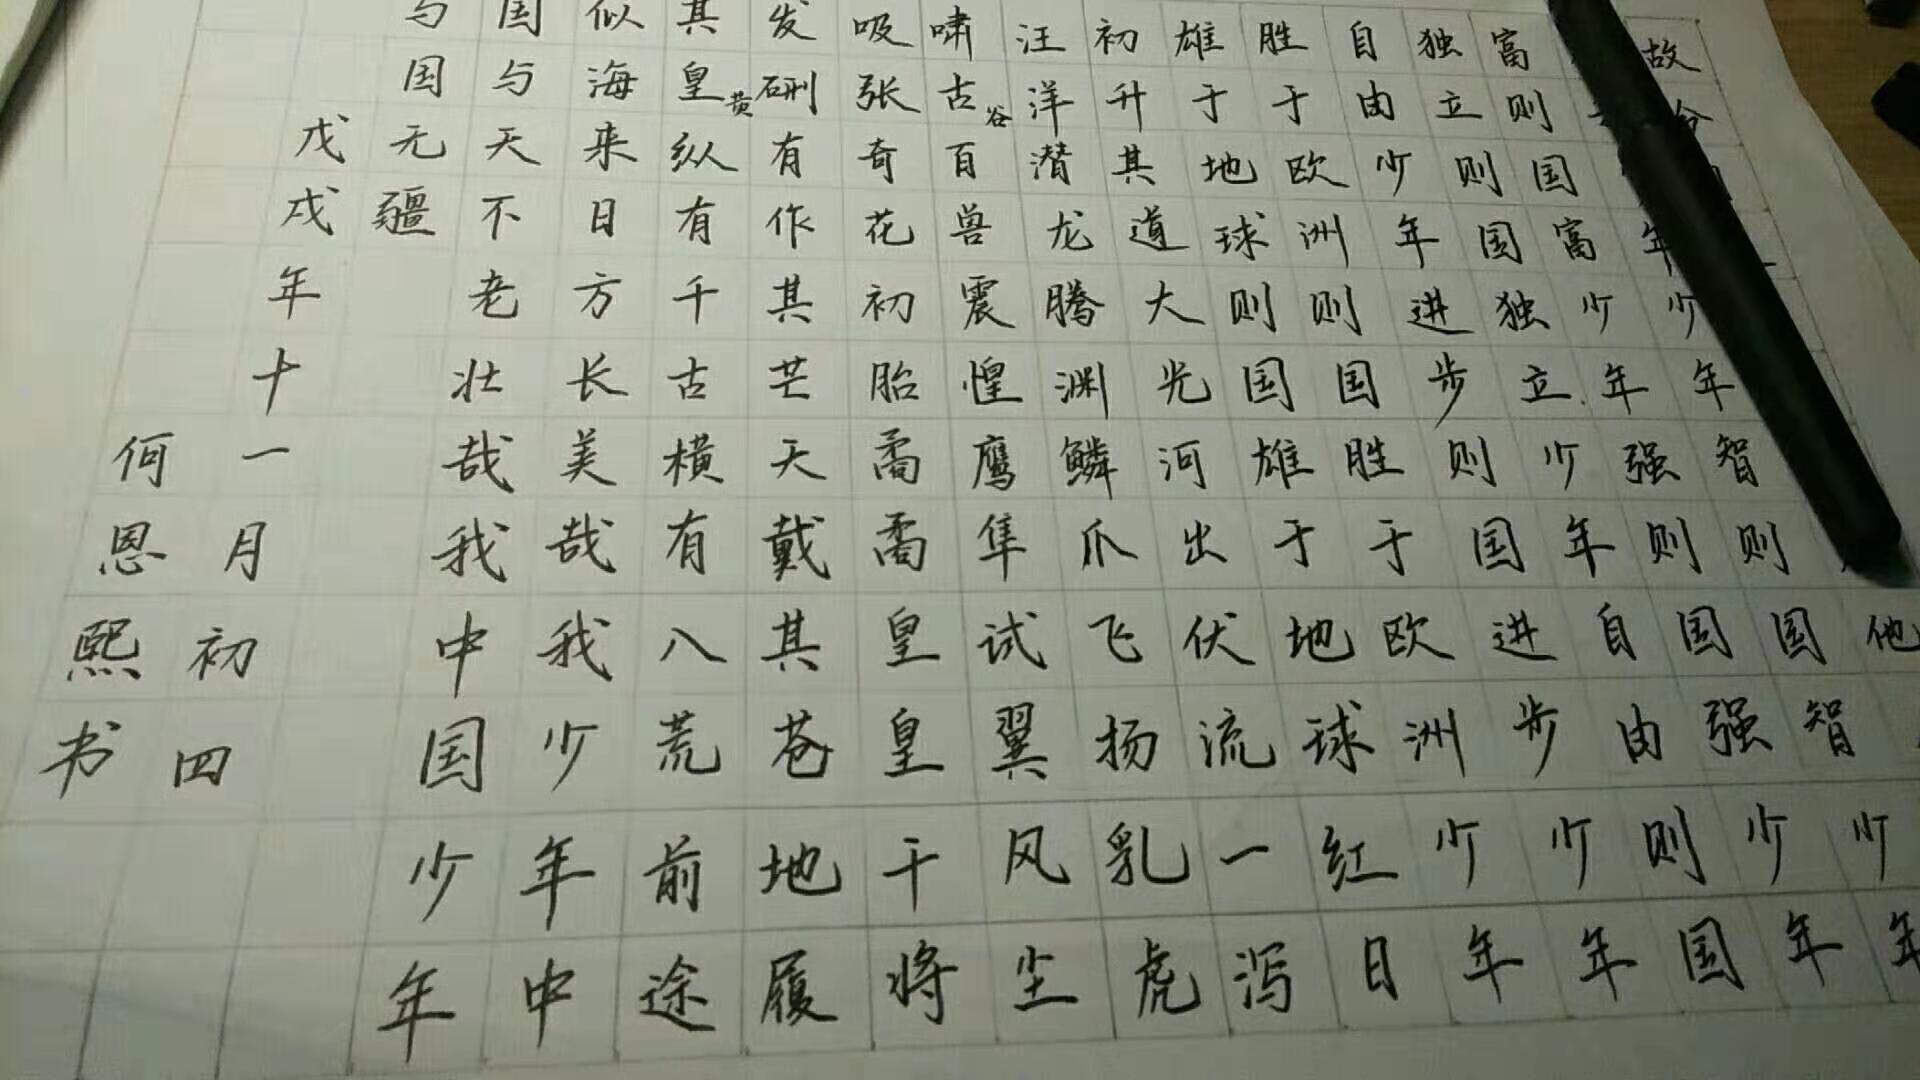 故今
他
年少年智则国智少年
富则国富少年强则国强少年
独立则国独立少年自由则国
自由少年进步则国进步少年
胜于欧洲则国胜于欧洲少年
雄于地球则国雄于地球红日
初升其道大光河出伏流一泻
汪洋潜龙腾渊鳞爪飞扬乳虎
啸古谷百兽震惶鹰隼试翼风尘
吸张奇花初胎矞矞皇皇干将
发硎有作其芒天戴其苍地履
其皇黄纵有千古横有八荒前途
似海来日方长美哉我少年中
国与天不老壮哉我中国少年
与国无疆
戊戌年十一月初四
何恩熙书